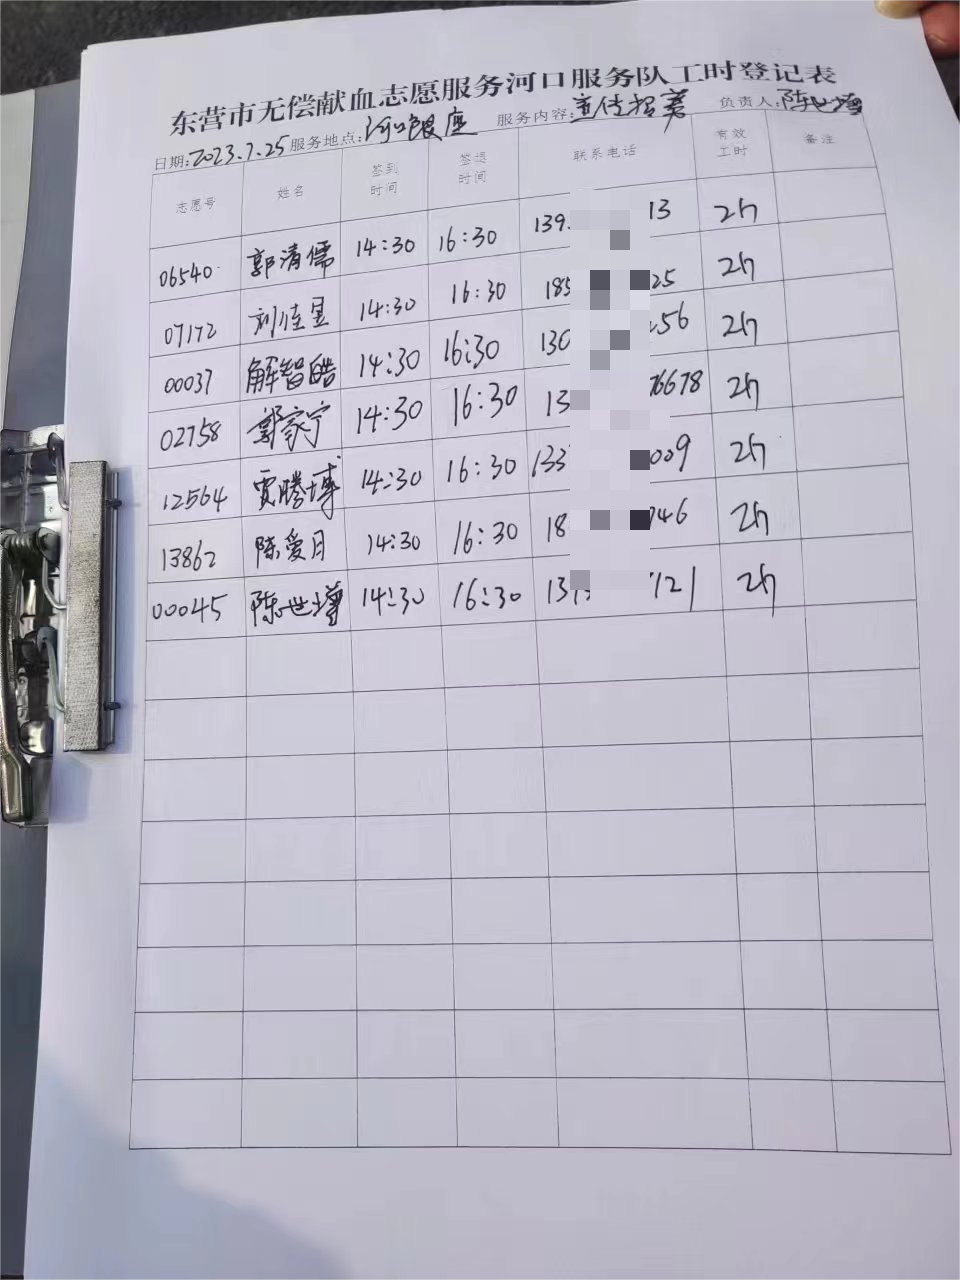 东营市无偿献血志愿服务河口服务队工时登记表
日期:2023.7.25 服务地点:河口银座 服务内容:宣传招募 负责人:陈世增
志愿号 姓名 签到时间 签退时间 联系电话 有效工时 备注
06540 郭清儒 14:30 16:30 139 13 2h
07172 刘佳昱 14:30 16:30 185 25 2h
00037 解智皓 14:30 16:30 130 256 2h
02758 郭家宁 14:30 16:30 13 76678 2h
12564 贾腾博 14:30 16:30 133 009 2h
13862 陈爱月 14:30 16:30 18 746 2h
00045 陈世增 14:30 16:30 13 7121 2h